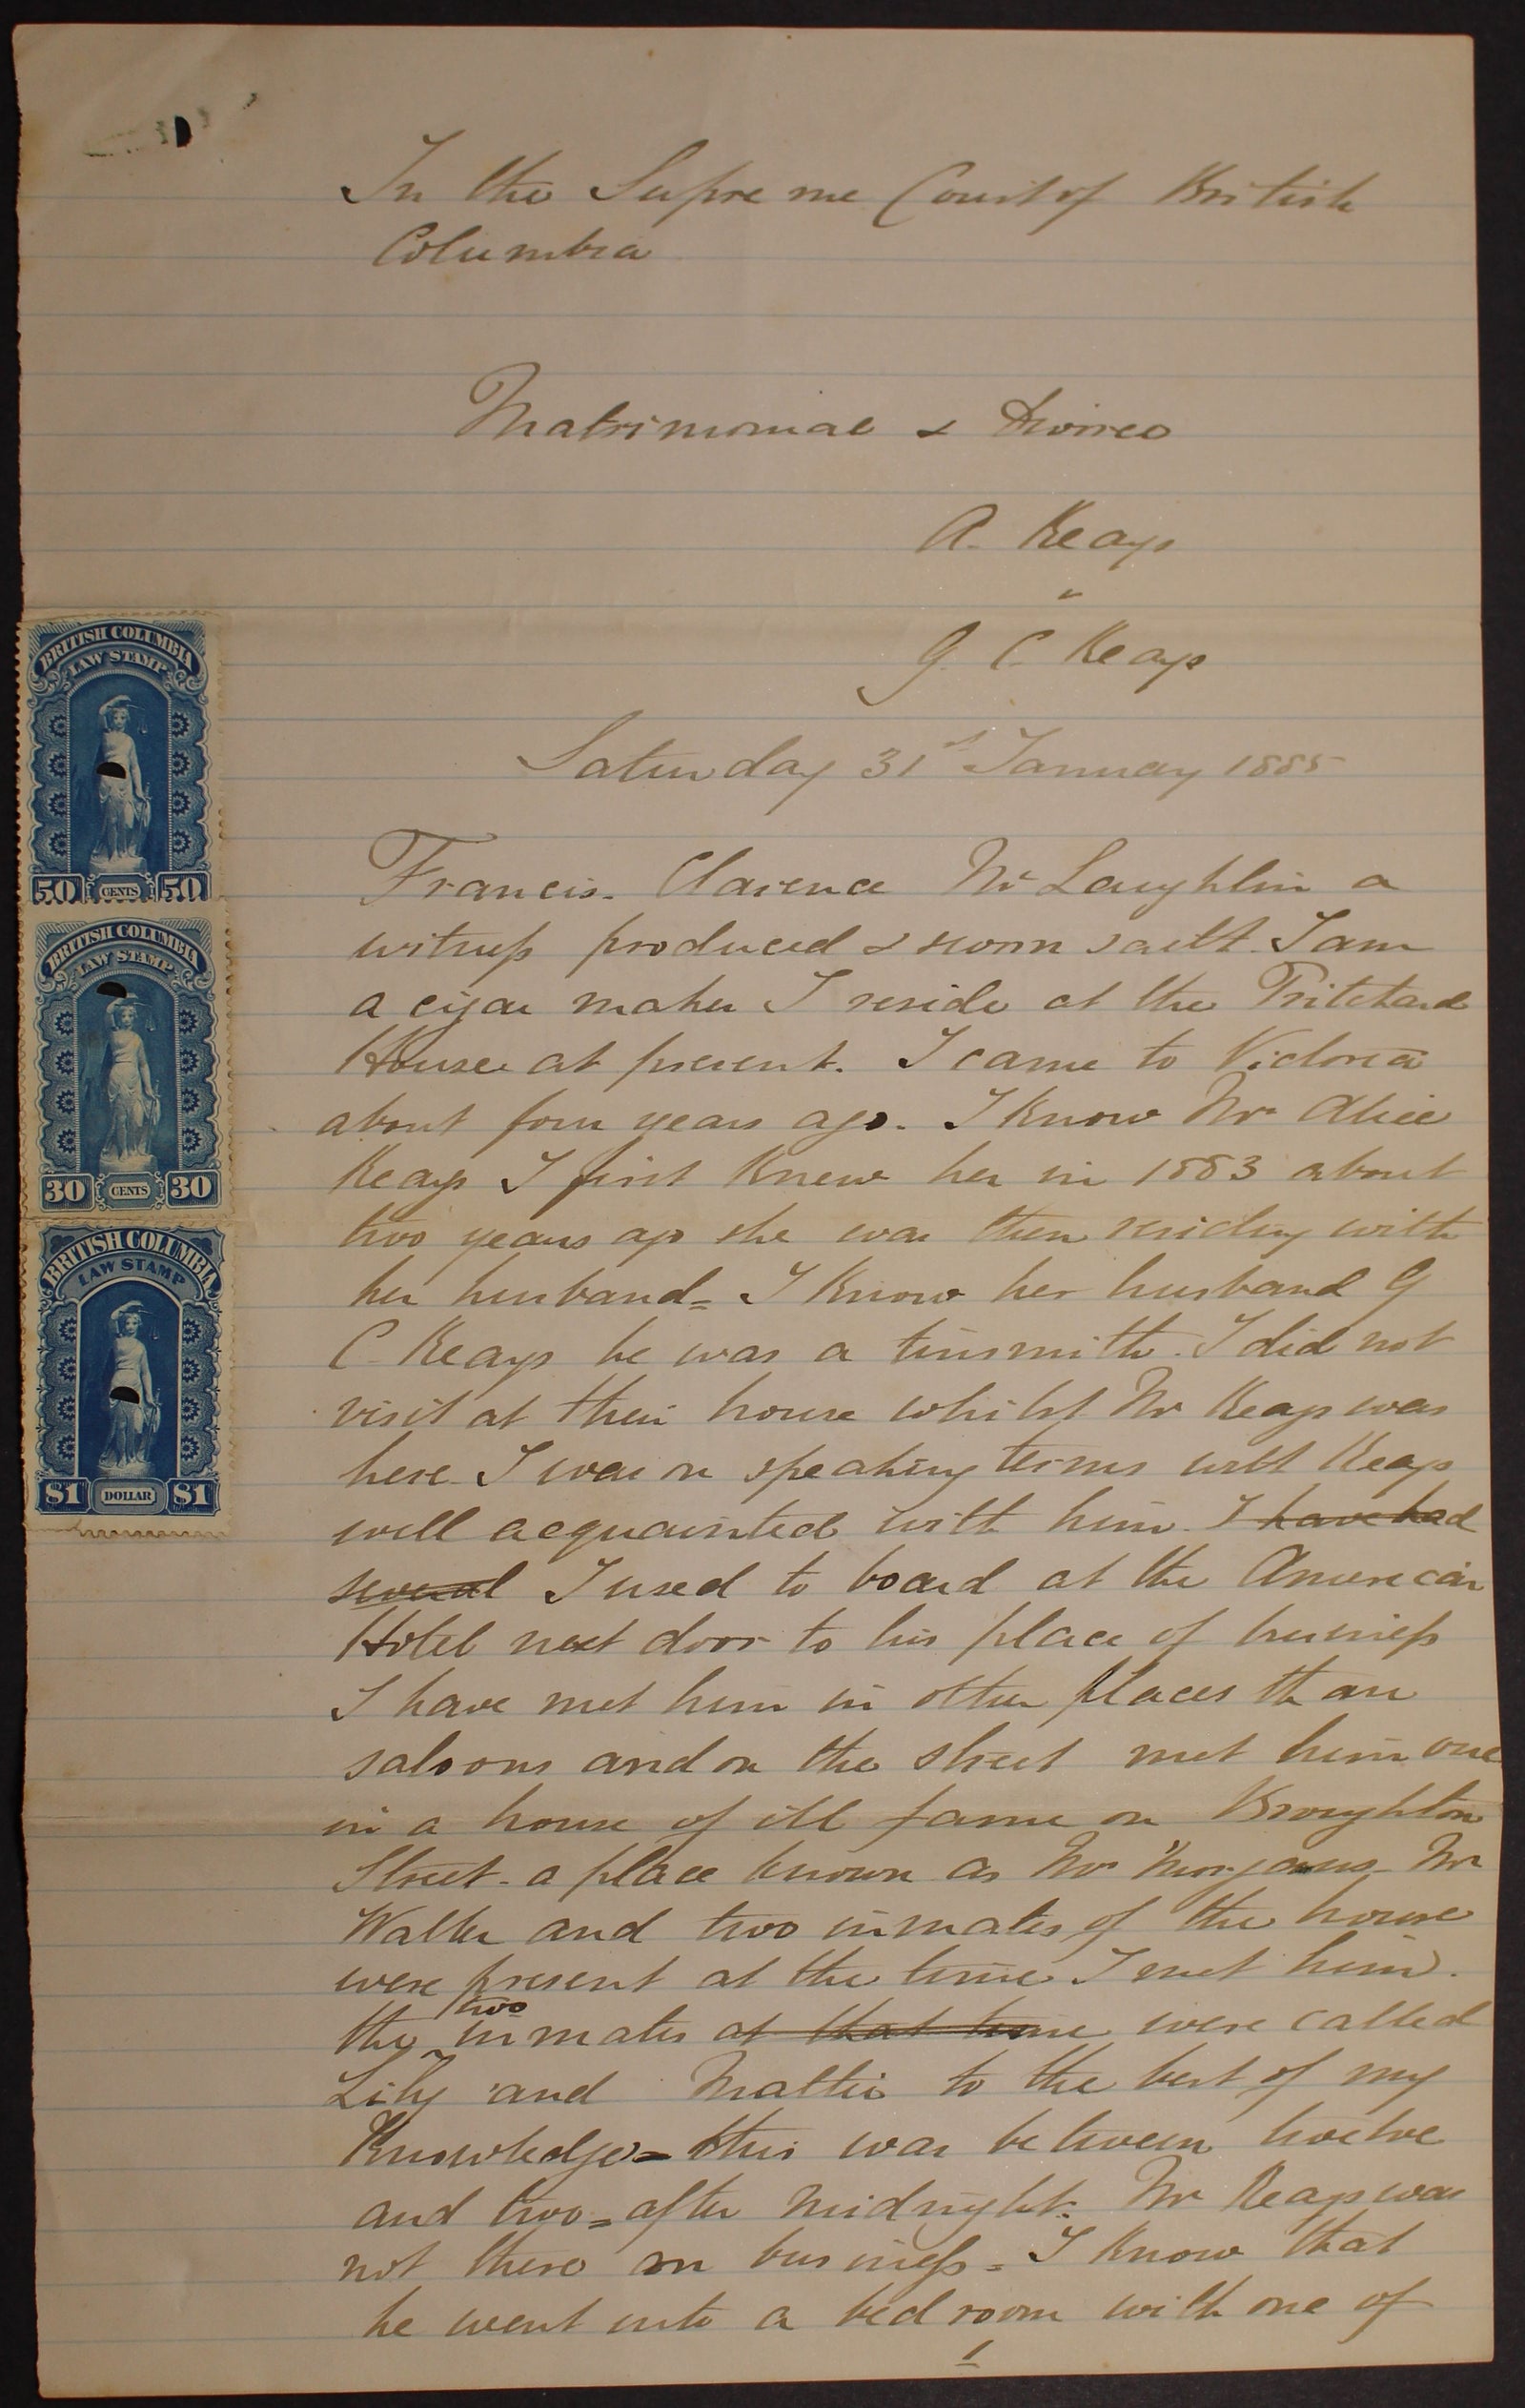 In the Supreme Court of British
Columbia
Matrimonial & Divorce
A. Keays
v
G. C. Keays
Saturday 31st January 1885
Francis. Clarence Mc Laughlin a
witness produced & sworn saith. I am
a cigar maker I reside at the Pritchard
House at present. I came to Victoria
about four years ago. I know Mrs Alice
Keays I first knew her in 1883 about
two years ago she was then residing with
her husband = I know her husband G
C. Keays he was a tinsmith. I did not
visit at their house whilst Mr Keays was
here. I was on speaking terms with Keays
well acquainted with him. I have had
several I used to board at the American
Hotel next door to his place of business
I have met him in other places than
saloons and on the street met him once
in a house of ill fame on Broughton
Street. a place known as Mrs Morgans. Mr
Walker and two inmates of the house
were present at the time I met him.
the two inmates at that time were called
Lily and Mattie to the best of my
Knowledge = this was between twelve
and two = after midnight. Mr Keays was
not there on business = I know that
he went into a bed room with one of
1
BRITISH COLUMBIA
LAW STAMP
50 CENTS 50
BRITISH COLUMBIA
LAW STAMP
30 CENTS 30
BRITISH COLUMBIA
LAW STAMP
$1 DOLLAR $1